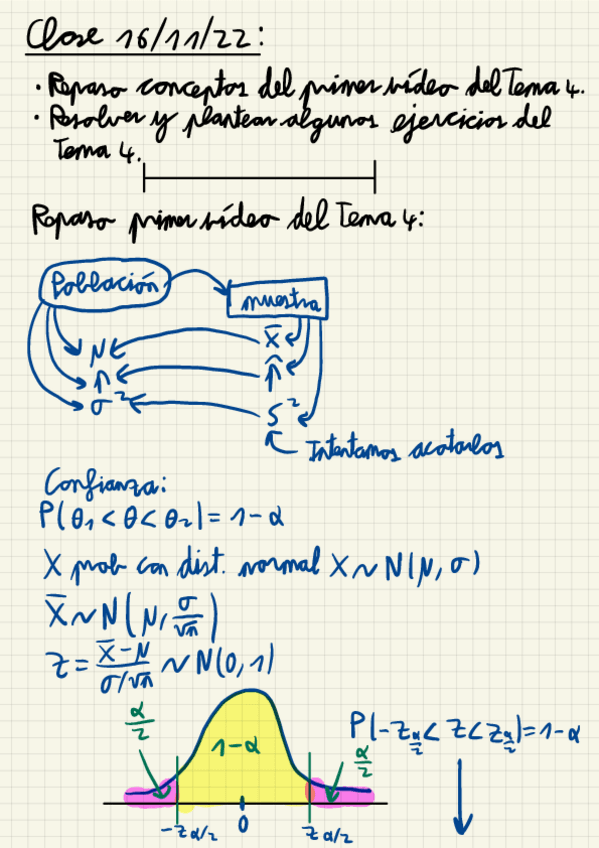 Clase 16/11/22:
· Repaso conceptos del primer vídeo del Tema 4.
· Resolver y plantear algunos ejercicios del
Tema 4.
Repaso primer vídeo del Tema 4:
Población
muestra
μ x̄
p p̂
σ² s²
Intentamos acotarlos
Confianza:
P(θ₁ < θ < θ₂) = 1-α
X prob con dist. normal X ~ N(μ, σ)
X̄ ~ N(μ, σ/√n)
z = (x̄-μ)/(σ/√n) ~ N(0, 1)
α/2
1-α
α/2
P(-z_α/2 < Z < z_α/2) = 1-α
-z α/2 0 z α/2